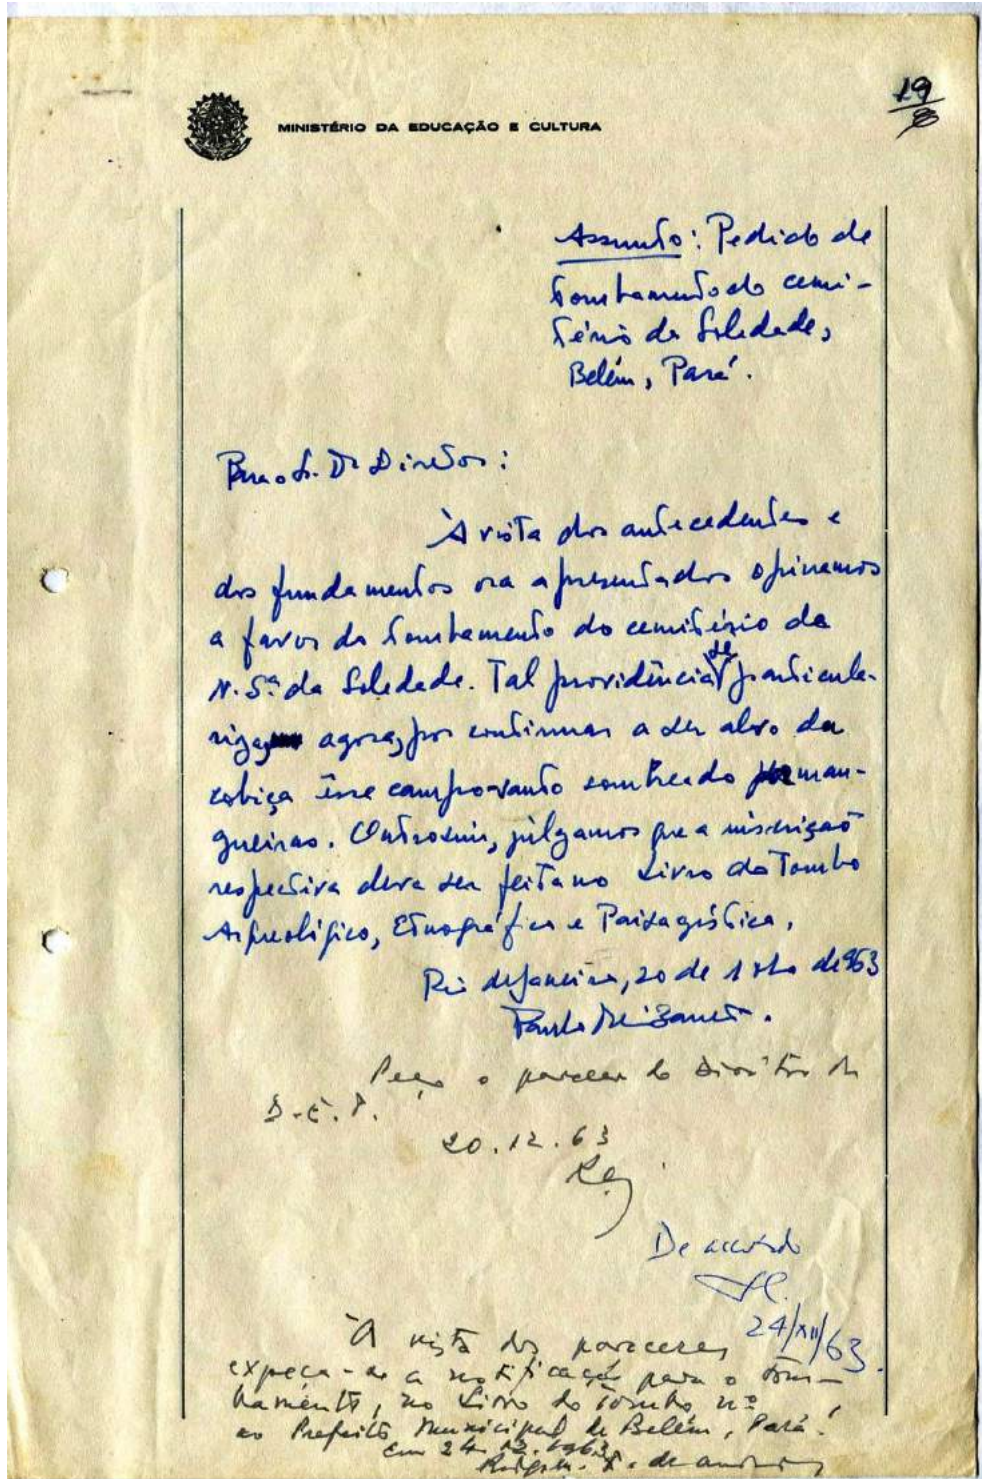 19
MINISTÉRIO DA EDUCAÇÃO E CULTURA
Assunto: Pedido de
tombamento do cemi-
tério da Soledade,
Belém, Pará.
Para o Sr. Dr Diretor:
À vista dos antecedentes e
dos fundamentos ora apresentados opinamos
a favor do tombamento do cemitério da
N. Sª da Soledade. Tal providência se particula-
riza agora, por continuar a ser alvo da
cobiça êsse campo-santo sombreado man-
gueiras. Outrossim, julgamos que a inscrição
respectiva deva ser feita no Livro do Tombo
Arqueológico, Etnográfico e Paisagístico.
Rio de Janeiro, 20 de de 963
Paulo
Peço o parecer do Diretor da
D.E.T.
20.12.63
De acordo
24/XII/63.
À vista dos pareceres,
expeça-se a notificação para o tom-
bamento, no Livro do Tombo nº
ao Prefeito Municipal de Belém, Pará.
Em 24.12.1963
de